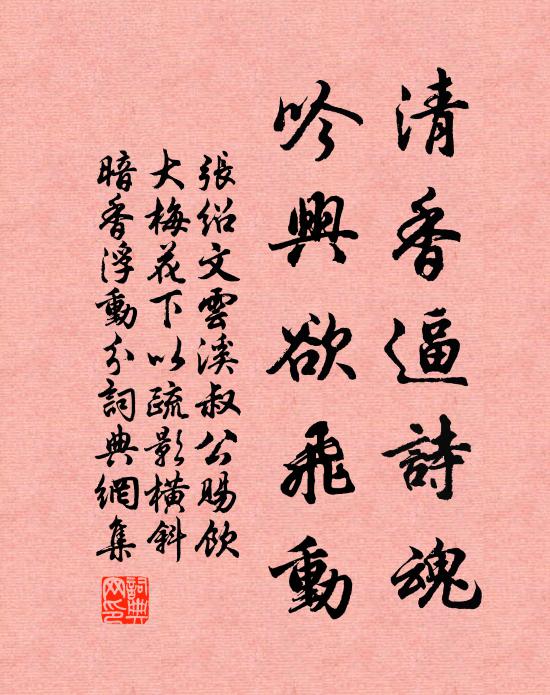 清香逼詩魂
吟興欲飛動
張紹文雲溪叔公賜飲
大梅花下以疏影橫斜
暗香浮動分詞典網集
詞典
网印